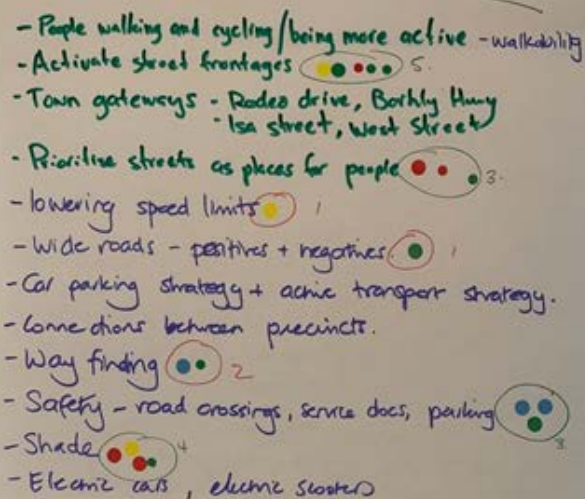 - People walking and cycling/being more active - walkability
- Activate street frontages 5.
- Town gateways - Rodeo drive, Barkly Hwy
- Isa street, West Street
- Prioritise streets as places for people 3.
- lowering speed limits 1
- Wide roads - positives + negatives. 1
- Car parking strategy + active transport strategy.
- Connections between precincts.
- Way finding 2
- Safety - road crossings, service docs, parking 3.
- Shade 4
- Electric cars, electric scooters